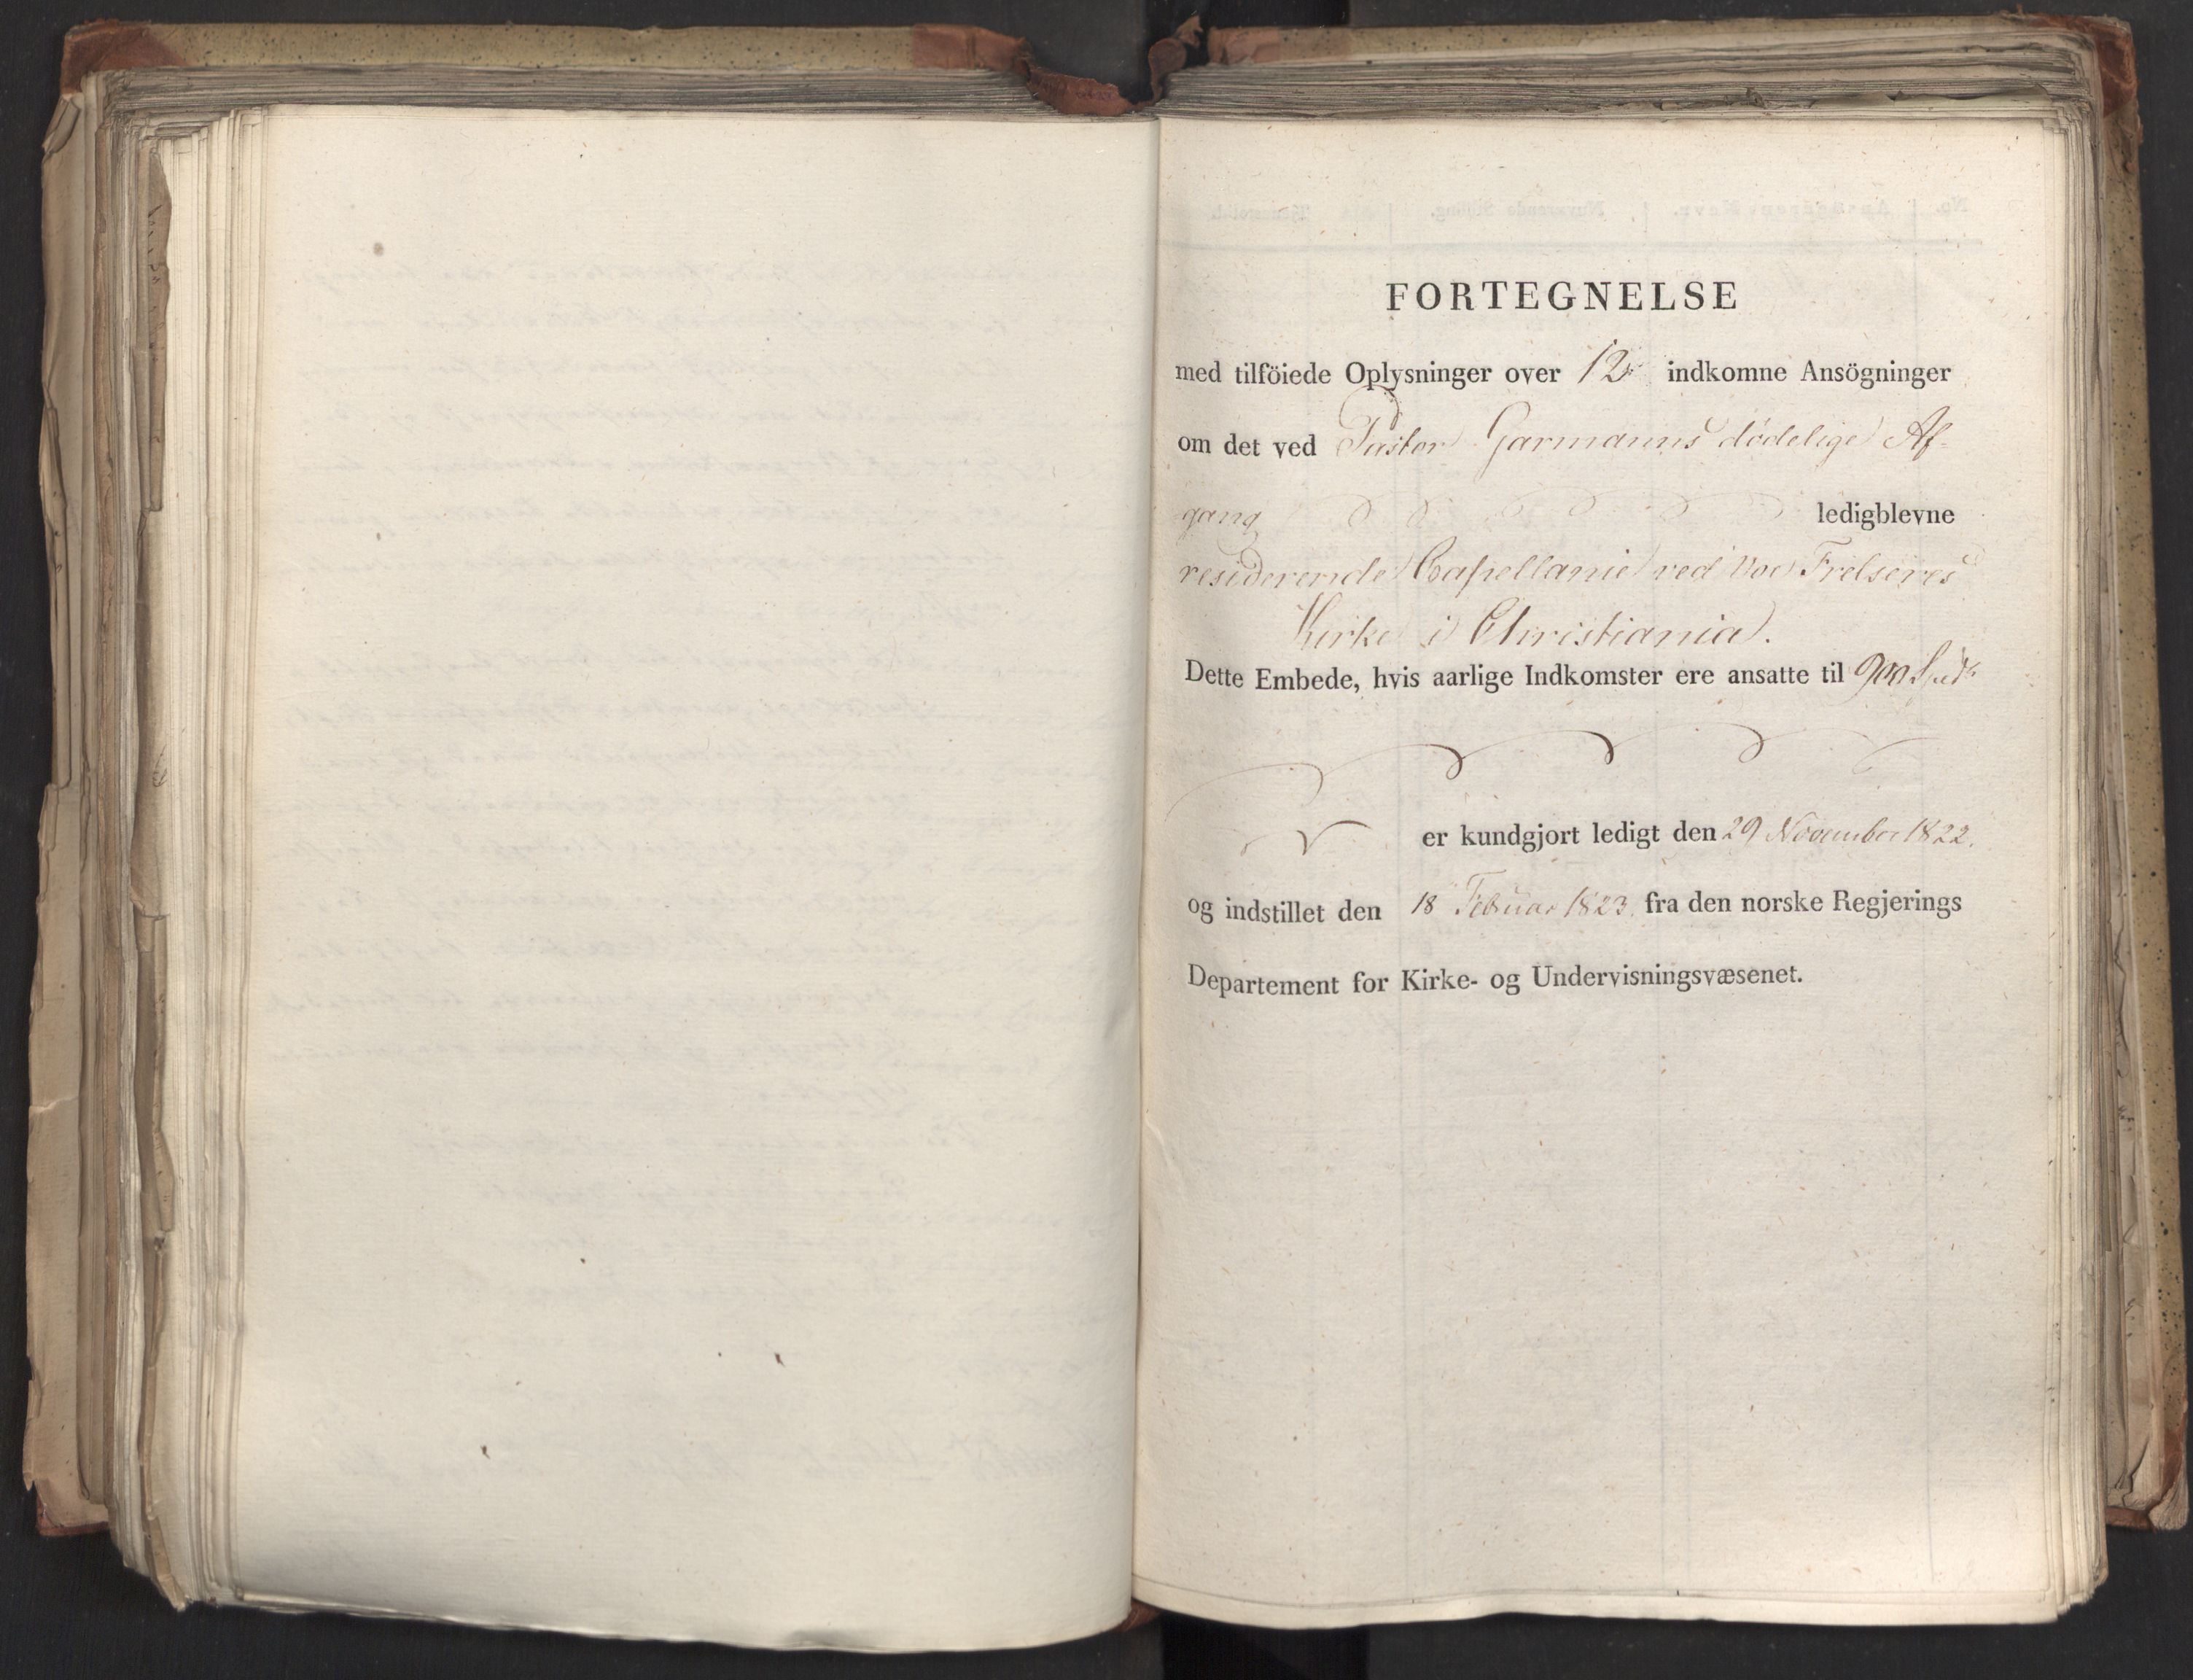 FORTEGNELSE
med tilföiede Oplysninger over 12 indkomne Ansögninger
om det ved Pastor Garmanns dødelige Af-
gang ledigblevne
residerende Capellanie ved Vor Frelseres
Kirke i Christiania.
Dette Embede, hvis aarlige Indkomster ere ansatte til 900 Spd
er kundgjort ledigt den 29 November 1822.
og indstillet den 18 Februar 1823. fra den norske Regjerings
Departement for Kirke- og Undervisningsvæsenet.